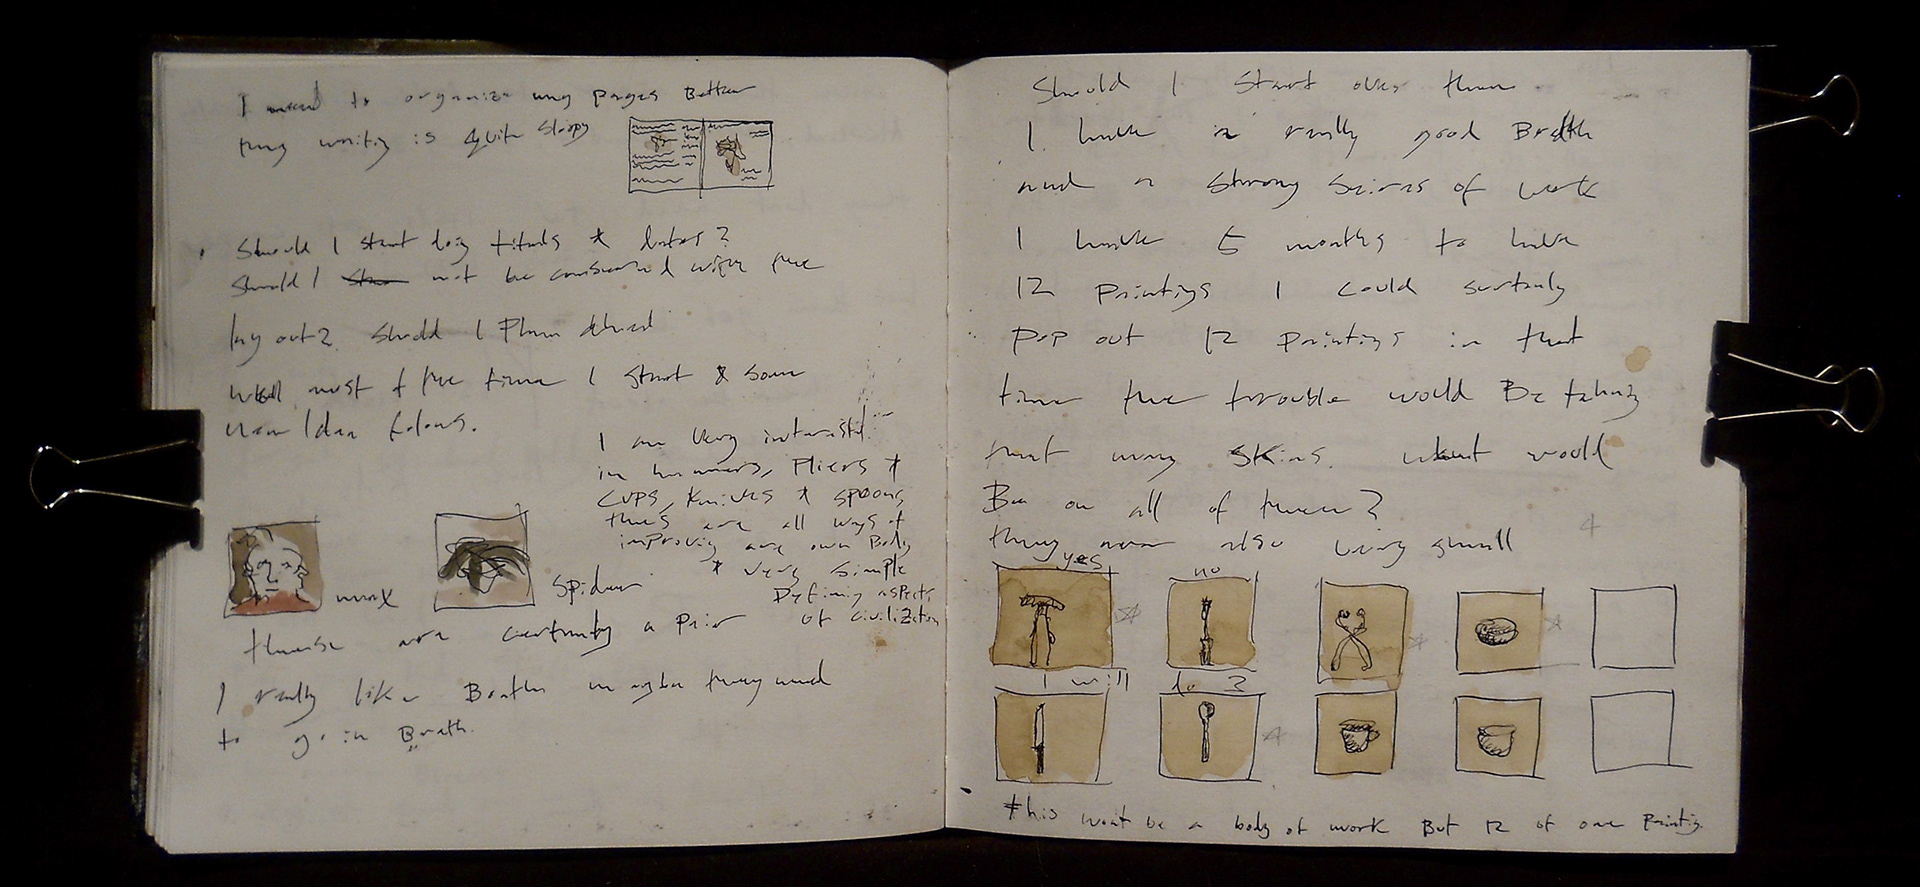 I need to organize my pages Better
my writing is quite sloopy
Should I start doing tituls & dates?
Should I not be consurnd with the
lay out? Should I Plan ahead
Well most of the time I start & some
new Idea folows.
I am very interestid
in hammers, Pliers &
CUPS, Knives & spoons,
thes are all ways of
improving are own Body
& very simple
Defining aspects
of civilization
max
Spider
these are certainly a pair
I really like Breath maybe they need
to go in Breath.
Should I start over then
I have a really good Breath
and a strong Seires of work
I have 5 months to have
12 paintings I could
Pop out 12 paintings in that
time the trouble would Be taking
that many skins. what would
Be on all of them?
they are also very small
yes
no
I will do 2
this wont be a body of work But 12 of one painting.